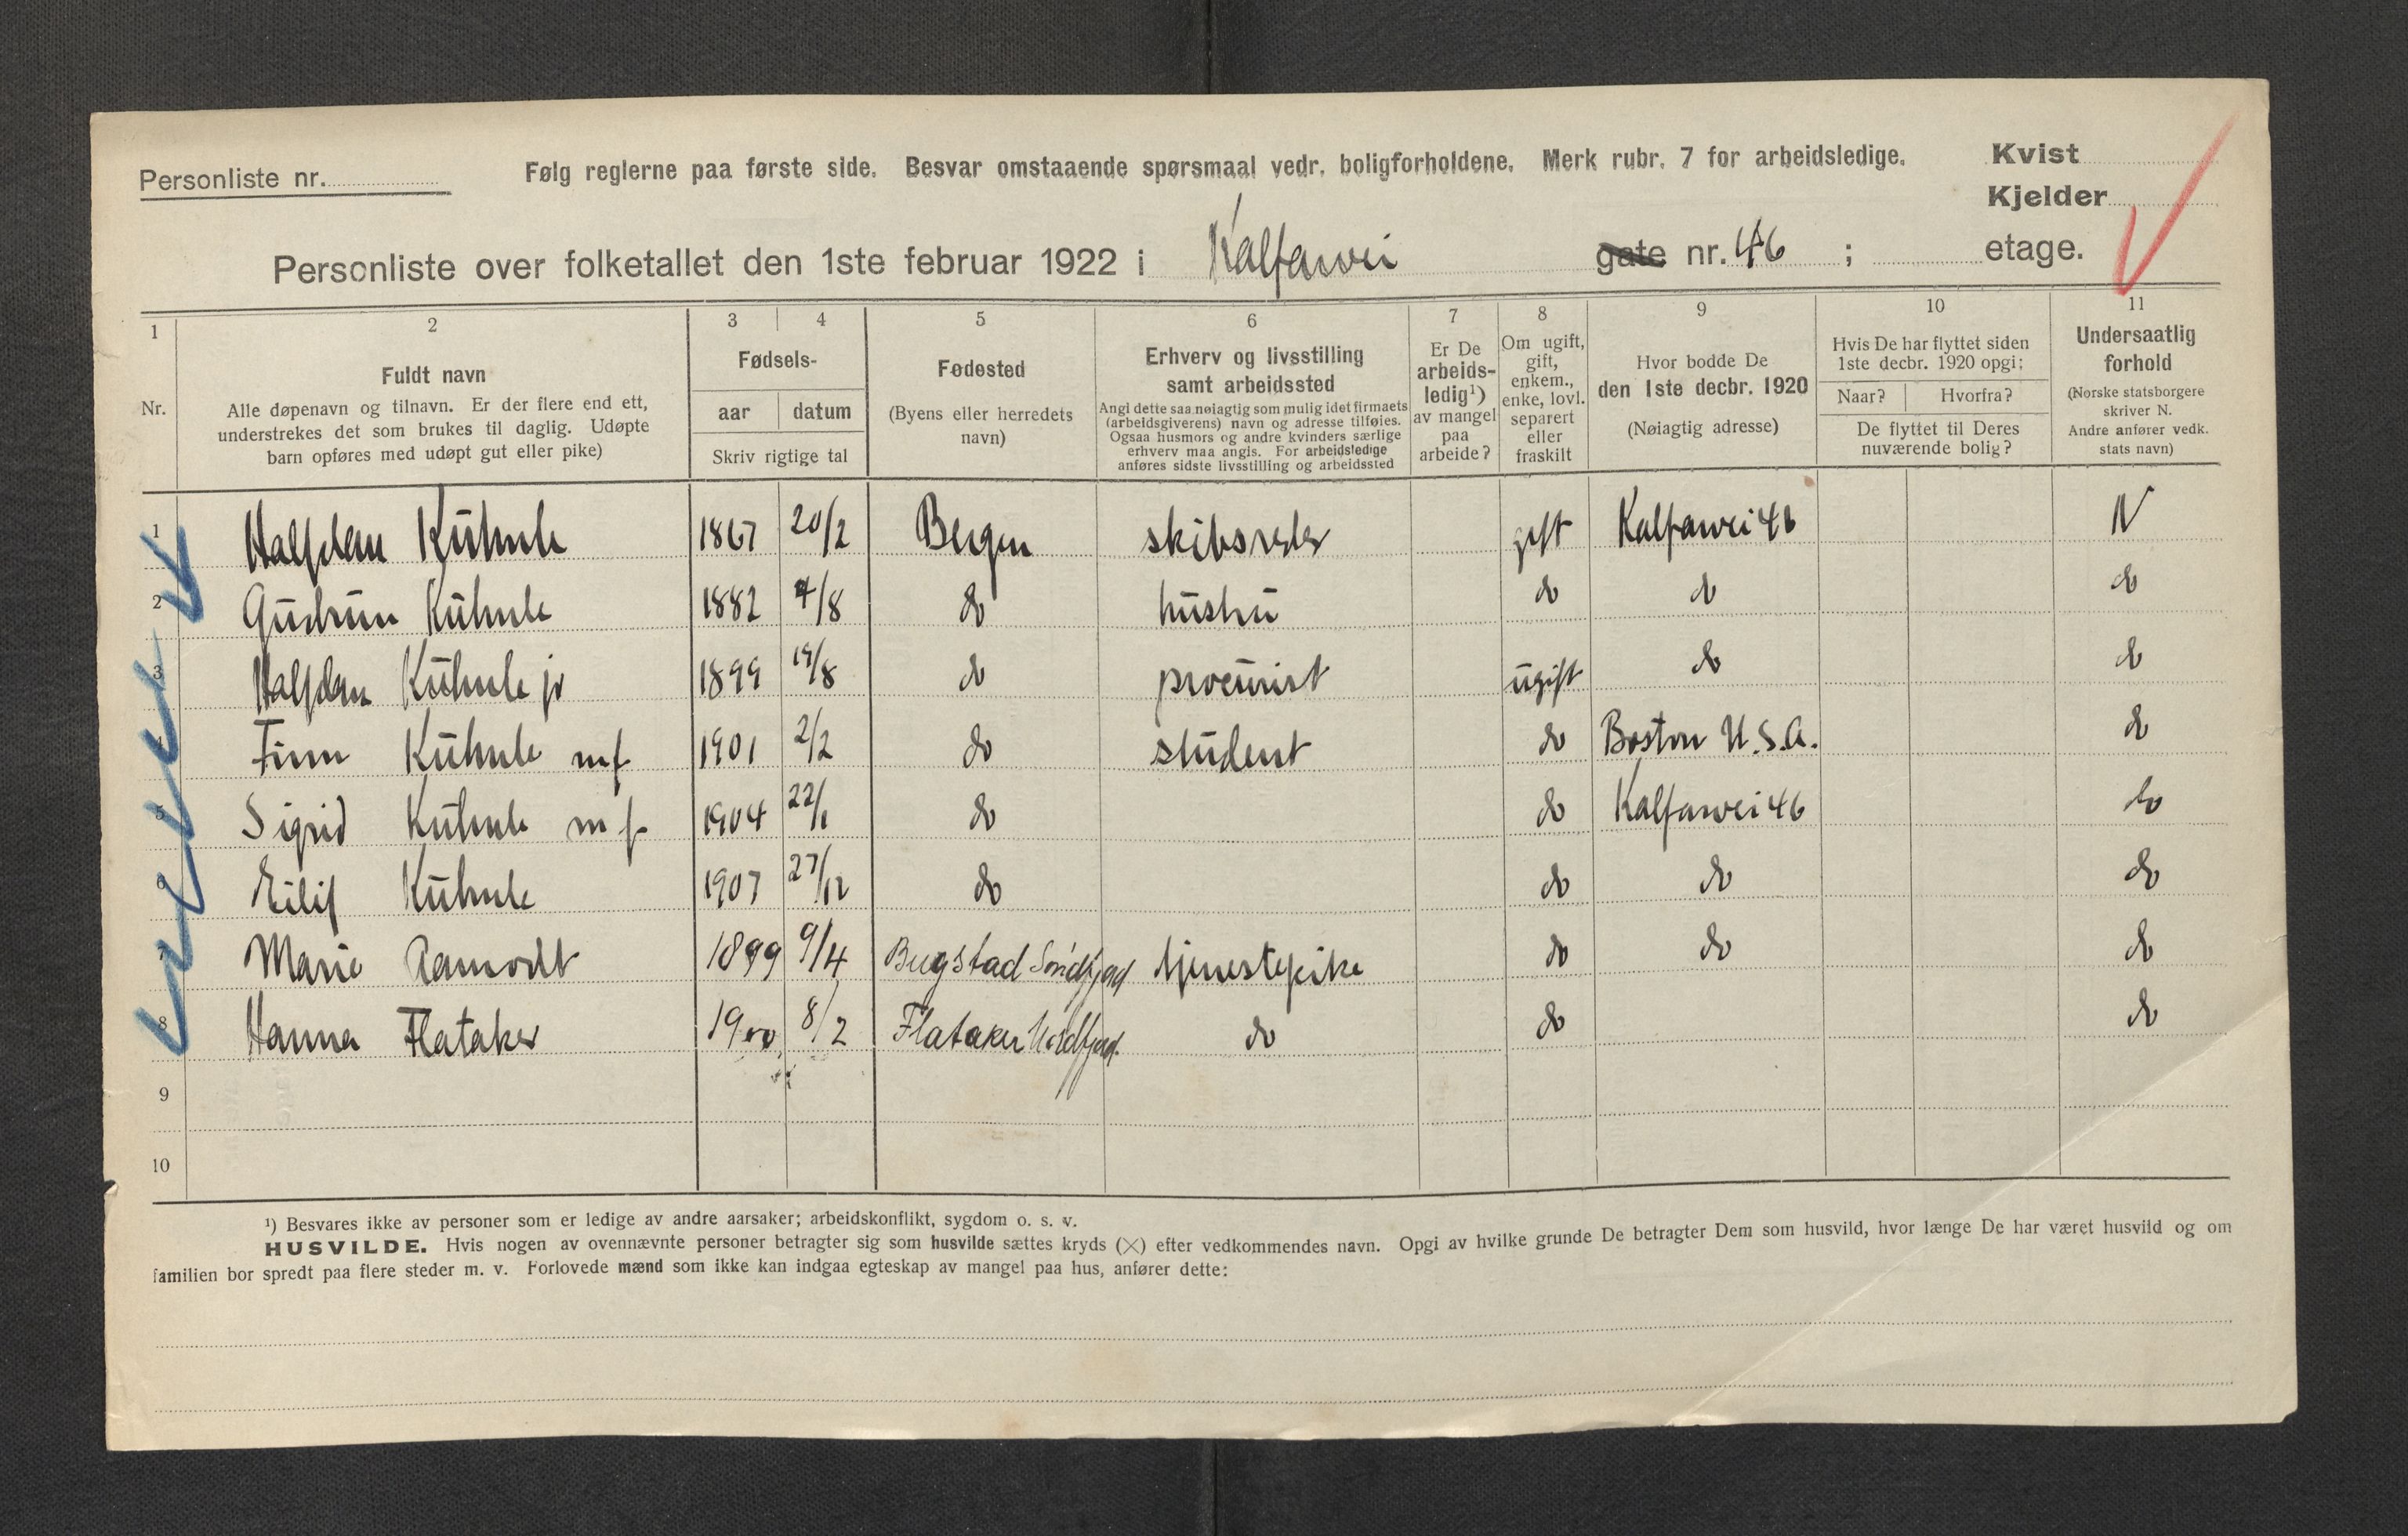 Personliste nr.
Følg reglerne paa første side. Besvar omstaaende spørsmaal vedr. boligforholdene. Merk rubr. 7 for arbeidsledige.
Kvist
Kjelder
Personliste over folketallet den 1ste februar 1922 i Kalfarvei gate nr. 46 ; etage.
1 2 3 4 5 6 7 8 9 10 11
Nr.
Fuldt navn
Alle døpenavn og tilnavn. Er der flere end ett,
understrekes det som brukes til daglig. Udøpte
barn opføres med udøpt gut eller pike)
Fødsels-
aar datum
Skriv rigtige tal
Fødested
(Byens eller herredets
navn)
Erhverv og livsstilling
samt arbeidssted
Angi dette saa nøiagtig som mulig idet firmaets
(arbeidsgiverens) navn og adresse tilføies.
Ogsaa husmors og andre kvinders særlige
erhverv maa angis. For arbeidsledige
anføres sidste livsstilling og arbeidssted
Er De
arbeids-
ledig¹)
av mangel
paa
arbeide?
Om ugift,
gift,
enkem.,
enke, lovl.
separert
eller
fraskilt
Hvor bodde De
den 1ste decbr. 1920
(Nøiagtig adresse)
Hvis De har flyttet siden
1ste decbr. 1920 opgi:
Naar? Hvorfra?
De flyttet til Deres
nuværende bolig?
Undersaatlig
forhold
(Norske statsborgere
skriver N.
Andre anfører vedk.
stats navn)
1 Halfdan Kühnle 1867 20/2 Bergen skibsreder gift Kalfarvei 46 N
2 Gudrun Kühnle 1882 4/8 do hustru do do do
3 Halfdan Kühnle jr 1899 19/8 do procurist ugift do do
4 Finn Kühnle mf 1901 2/2 do student do Boston U.S.A. do
5 Sigrid Kühnle mf 1904 22/1 do do Kalfarvei 46 do
6 Eilif Kühnle 1907 27/12 do do do do
7 Marie Aamodt 1899 9/4 Bugstad Søndfjord tjenestepike do do do
8 Hanna Flataker 1900 8/2 Flataker Nordfjord. do do do
9
10
¹) Besvares ikke av personer som er ledige av andre aarsaker; arbeidskonflikt, sygdom o. s. v.
HUSVILDE. Hvis nogen av ovennævnte personer betragter sig som husvilde sættes kryds (×) efter vedkommendes navn. Opgi av hvilke grunde De betragter Dem som husvild, hvor længe De har været husvild og om
familien bor spredt paa flere steder m. v. Forlovede mænd som ikke kan indgaa egteskap av mangel paa hus, anfører dette: